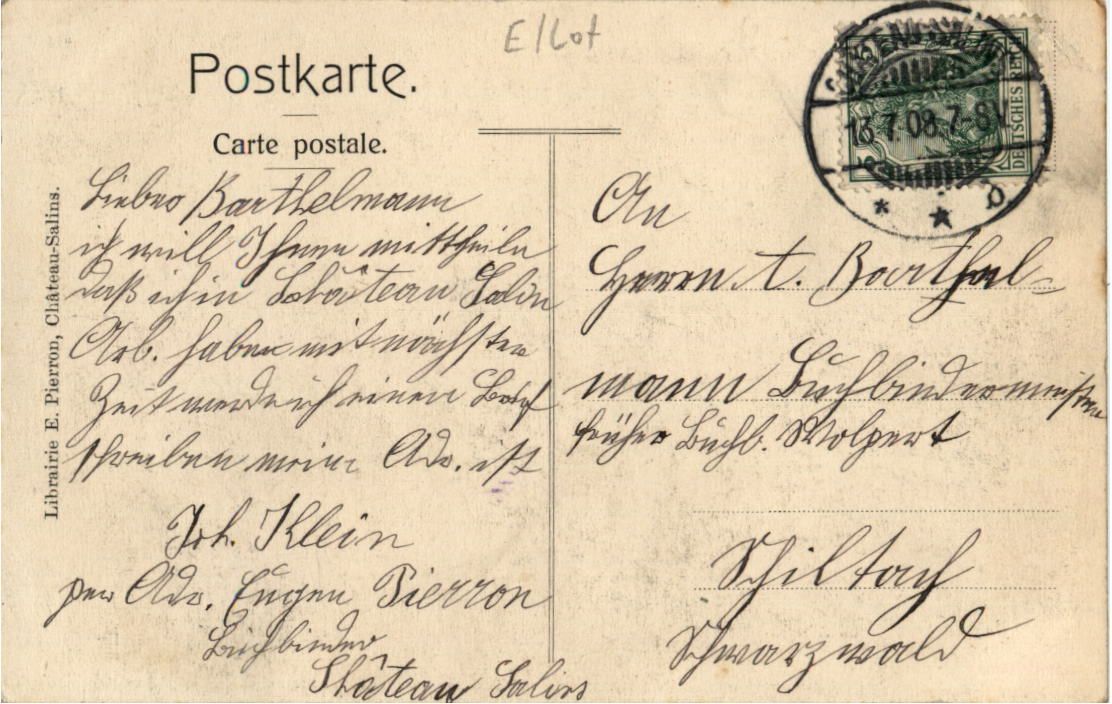 E/Lot
Postkarte.
Carte postale.
Librairie E. Pierron, Château-Salins.
DEUTSCHES REICH
13.7.08.7-8V.
* * b
Lieber Barthelmann
ich will Ihnen mittheilen
daß ich in Château Salin
Arb. haben mit nächsten
Zeit werde ich einen Brief
schreiben meine Adr. ist
Joh. Klein
per Adr. Eugen Pierron
Buchbinder
Château Salins
An
Herrn A. Barthel-
mann Buchbindermeister
früher Buchb. Wolpert
Schiltach
Schwarzwald